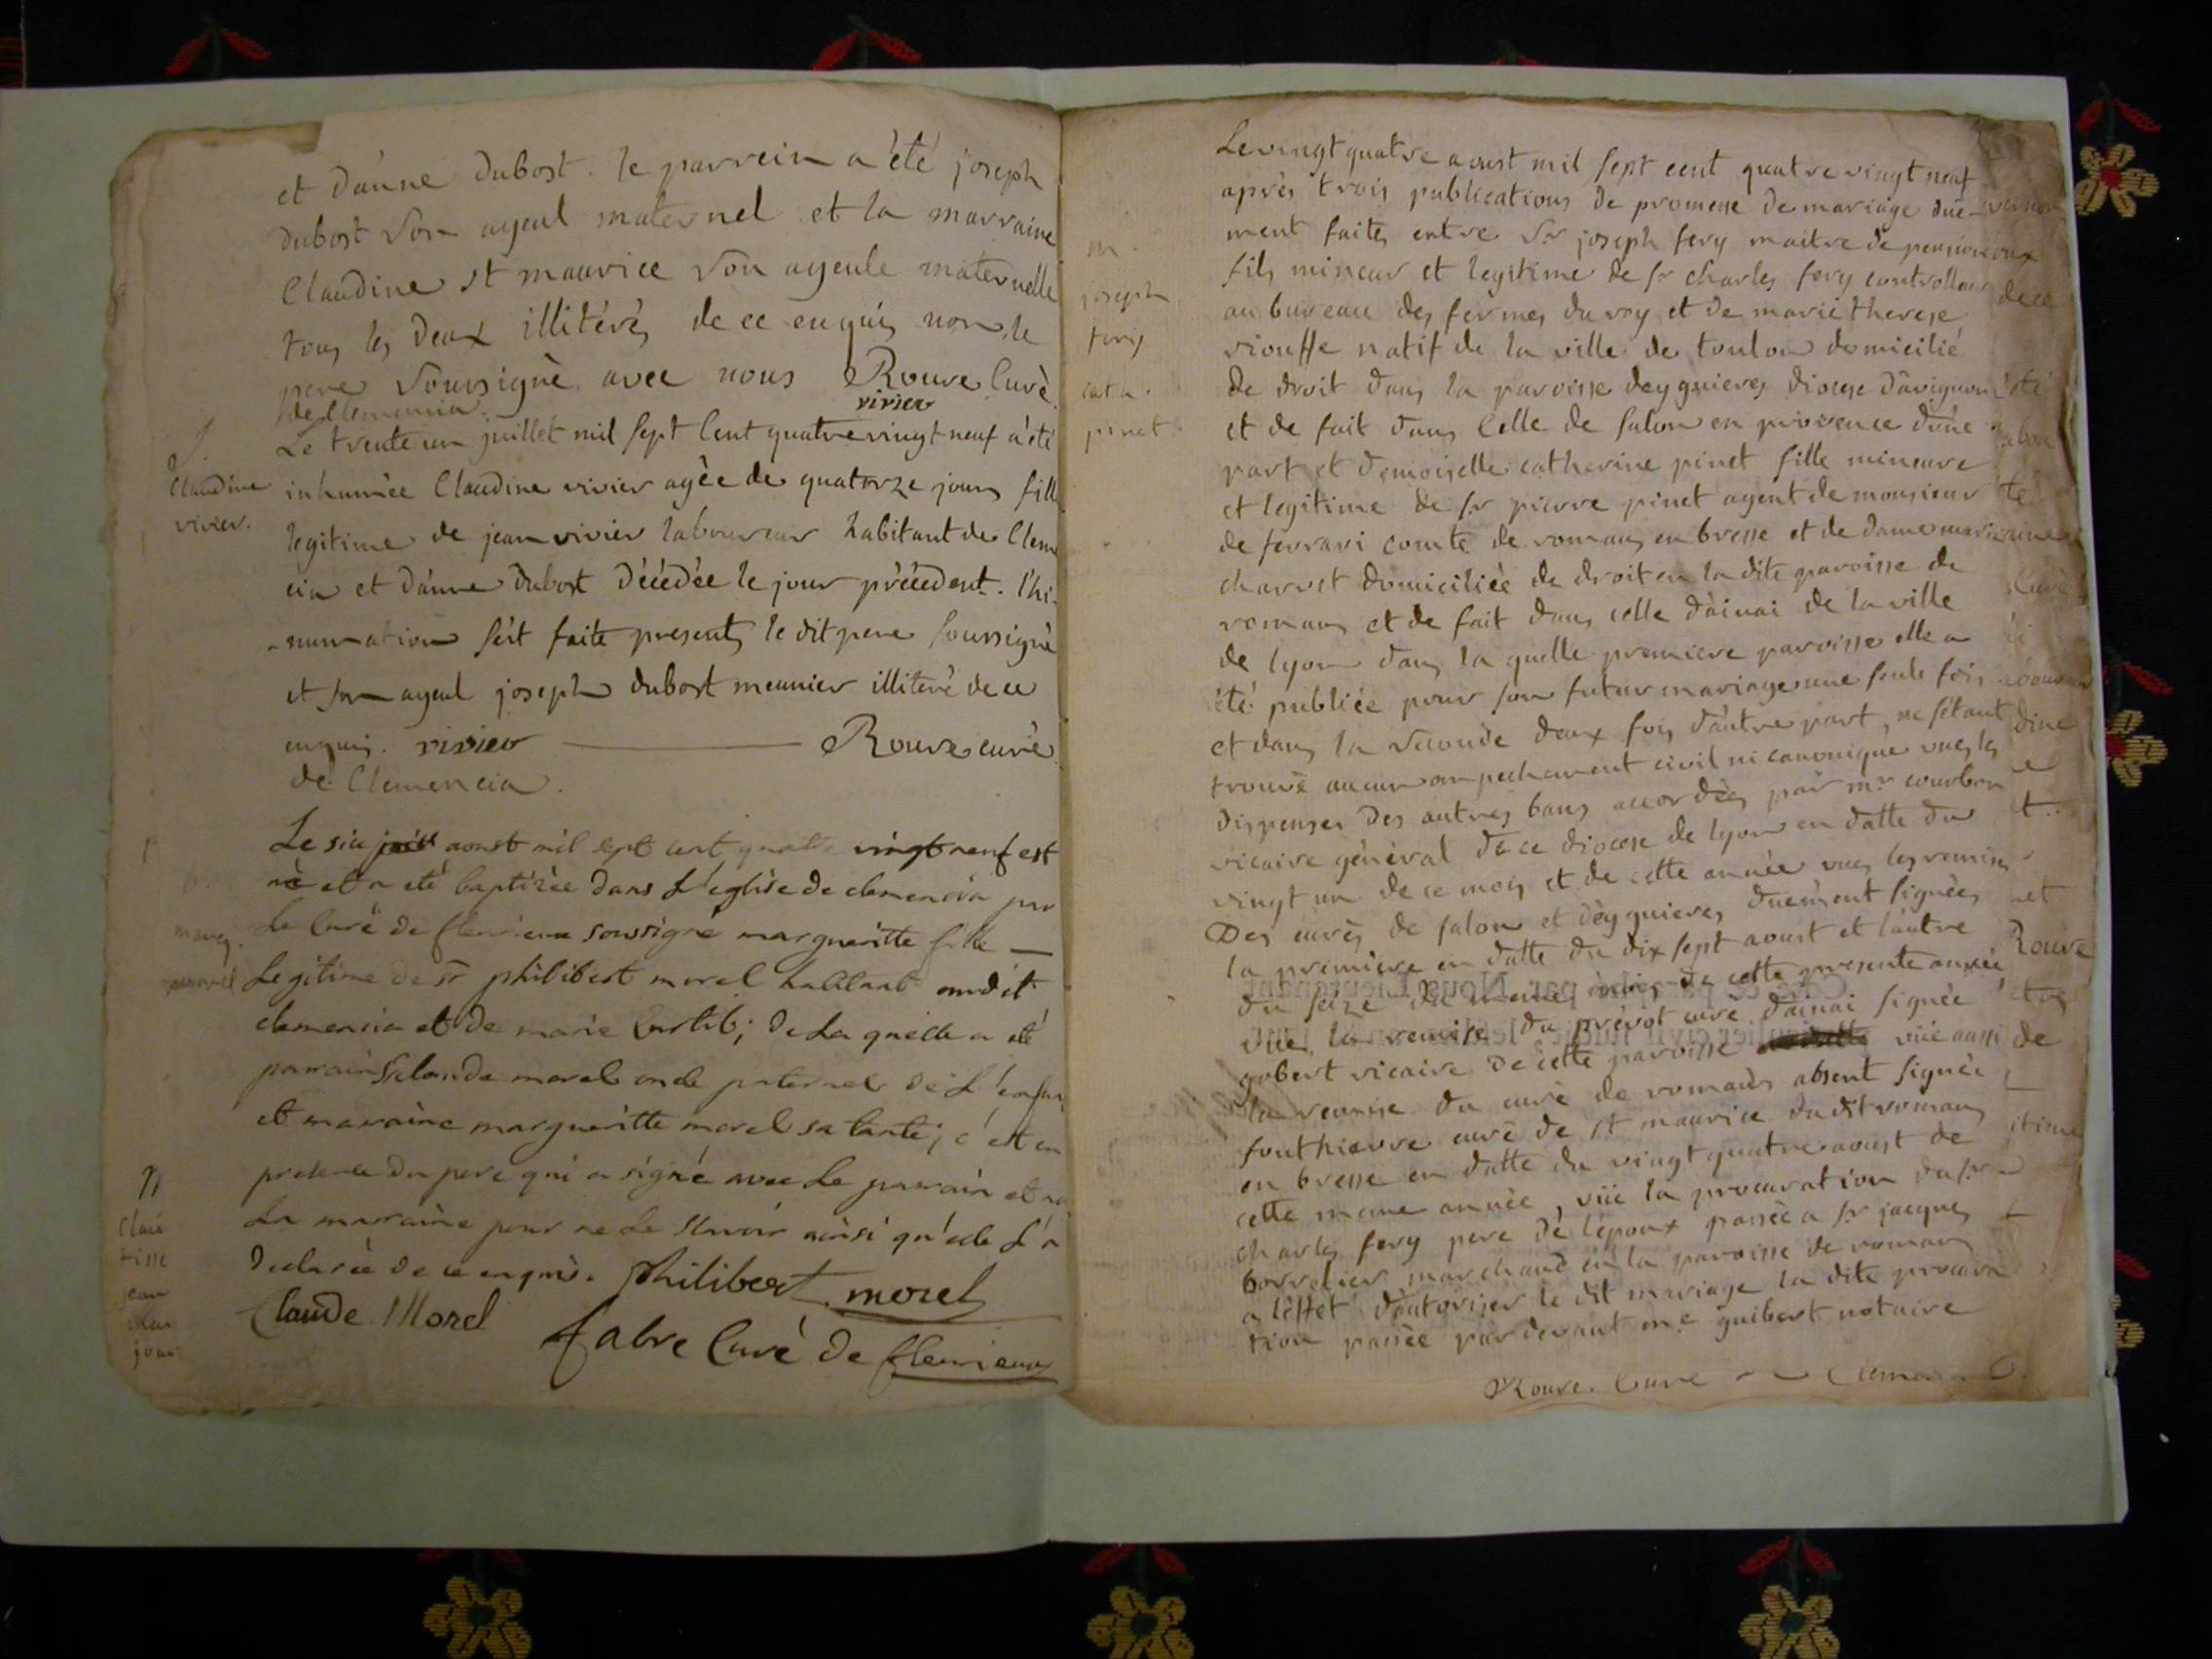 et d'anne dubost. le parrein a été joseph
dubost son ayeul maternel et la marraine
Claudine st maurice son ayeule maternelle
tous les deux illitérés de ce enquis non le
pere soussigné avec nous Rouve Curé
de Clemencia. vivier
Le trente un juillet mil sept Cent quatre vingt neuf a été
Claudine
vivier.
inhumée Claudine vivier agée de quatorze jours fille
legitime de jean vivier laboureur habitant de Clem
cia et d'anne dubost décédée le jour précedent. l'hi-
-numation s'est faite presents le dit pere soussigné
et son ayeul joseph dubost meunier illiteré de ce
enquis. vivier Rouve curé
de Clemencia.
Le six aoust mil sept cent quatre vingt neuf est
né et a eté baptizée dans L'eglise de clemencia par
Le Curé de fleurieux soussigné margueritte fille
Legitime de sr philibert morel habitant audit
clemencia et de marie ; de La quelle a eté
parrain claude morel oncle paternel de L'enfan
et marraine margueritte morel sa tante; c'est en
presence du pere qui a signé avec Le parrain et no
La marraine pour ne Le scavoir ainsi qu'elle L'a
declaré de ce enquis. philibert morel
Claude Morel
fabre Curé de fleurieux
joseph
fery
cata.
pinet
Le vingt quatre aoust mil sept cent quatre vingt neuf
après trois publications de promesse de mariage düe-
ment faites entre Sr joseph fery maitre de pension
fils mineur et legitime de sr charles fery controlleur
au bureau des fermes du roy et de marie therese
viouffe natif de la ville de toulon domicilié
de droit dans la paroisse deyguieres diocese d'avignon
et de fait dans Celle de salon en provence d'une
part et demoiselle catherine pinet fille mineure
et legitime de sr pierre pinet agent de monsieur
de ferrari comte de romans en bresse et de dame marie
charvet domiciliée de droit en la dite paroisse de
romans et de fait dans celle d'ainai de la ville
de lyon dans la quelle premiere paroisse elle a
été publiée pour son futur mariage une seule fois
et dans la seconde deux fois d'autre part, ne s'étant
trouvé aucun empechement civil ni canonique vues les
dispenses des autres bans accordées par mr courbon
vicaire général de ce diocese de lyon en datte du
vingt un de ce mois et de cette année vues les remises
Des curés de salon et deyguieres duement signées
la premiere en datte du dix sept aoust et l'autre
du seize du meme mois de cette presente année
vüe la remise du prévot curé d'ainai signée
gobert vicaire de cette paroisse vüe aussi
la remise du curé de romans absent signée
fouthierre curé de st maurice du dit romans
en bresse en datte du vingt quatre aoust de
cette meme année, vüe la procuration du sr
charles fery pere de l'epoux passée a sr jacques
borrelier marchand en la paroisse de romans
a l'effet d'autoriser le dit mariage la dite procura
tion passée par devant me guibert notaire
Rouve. Curé